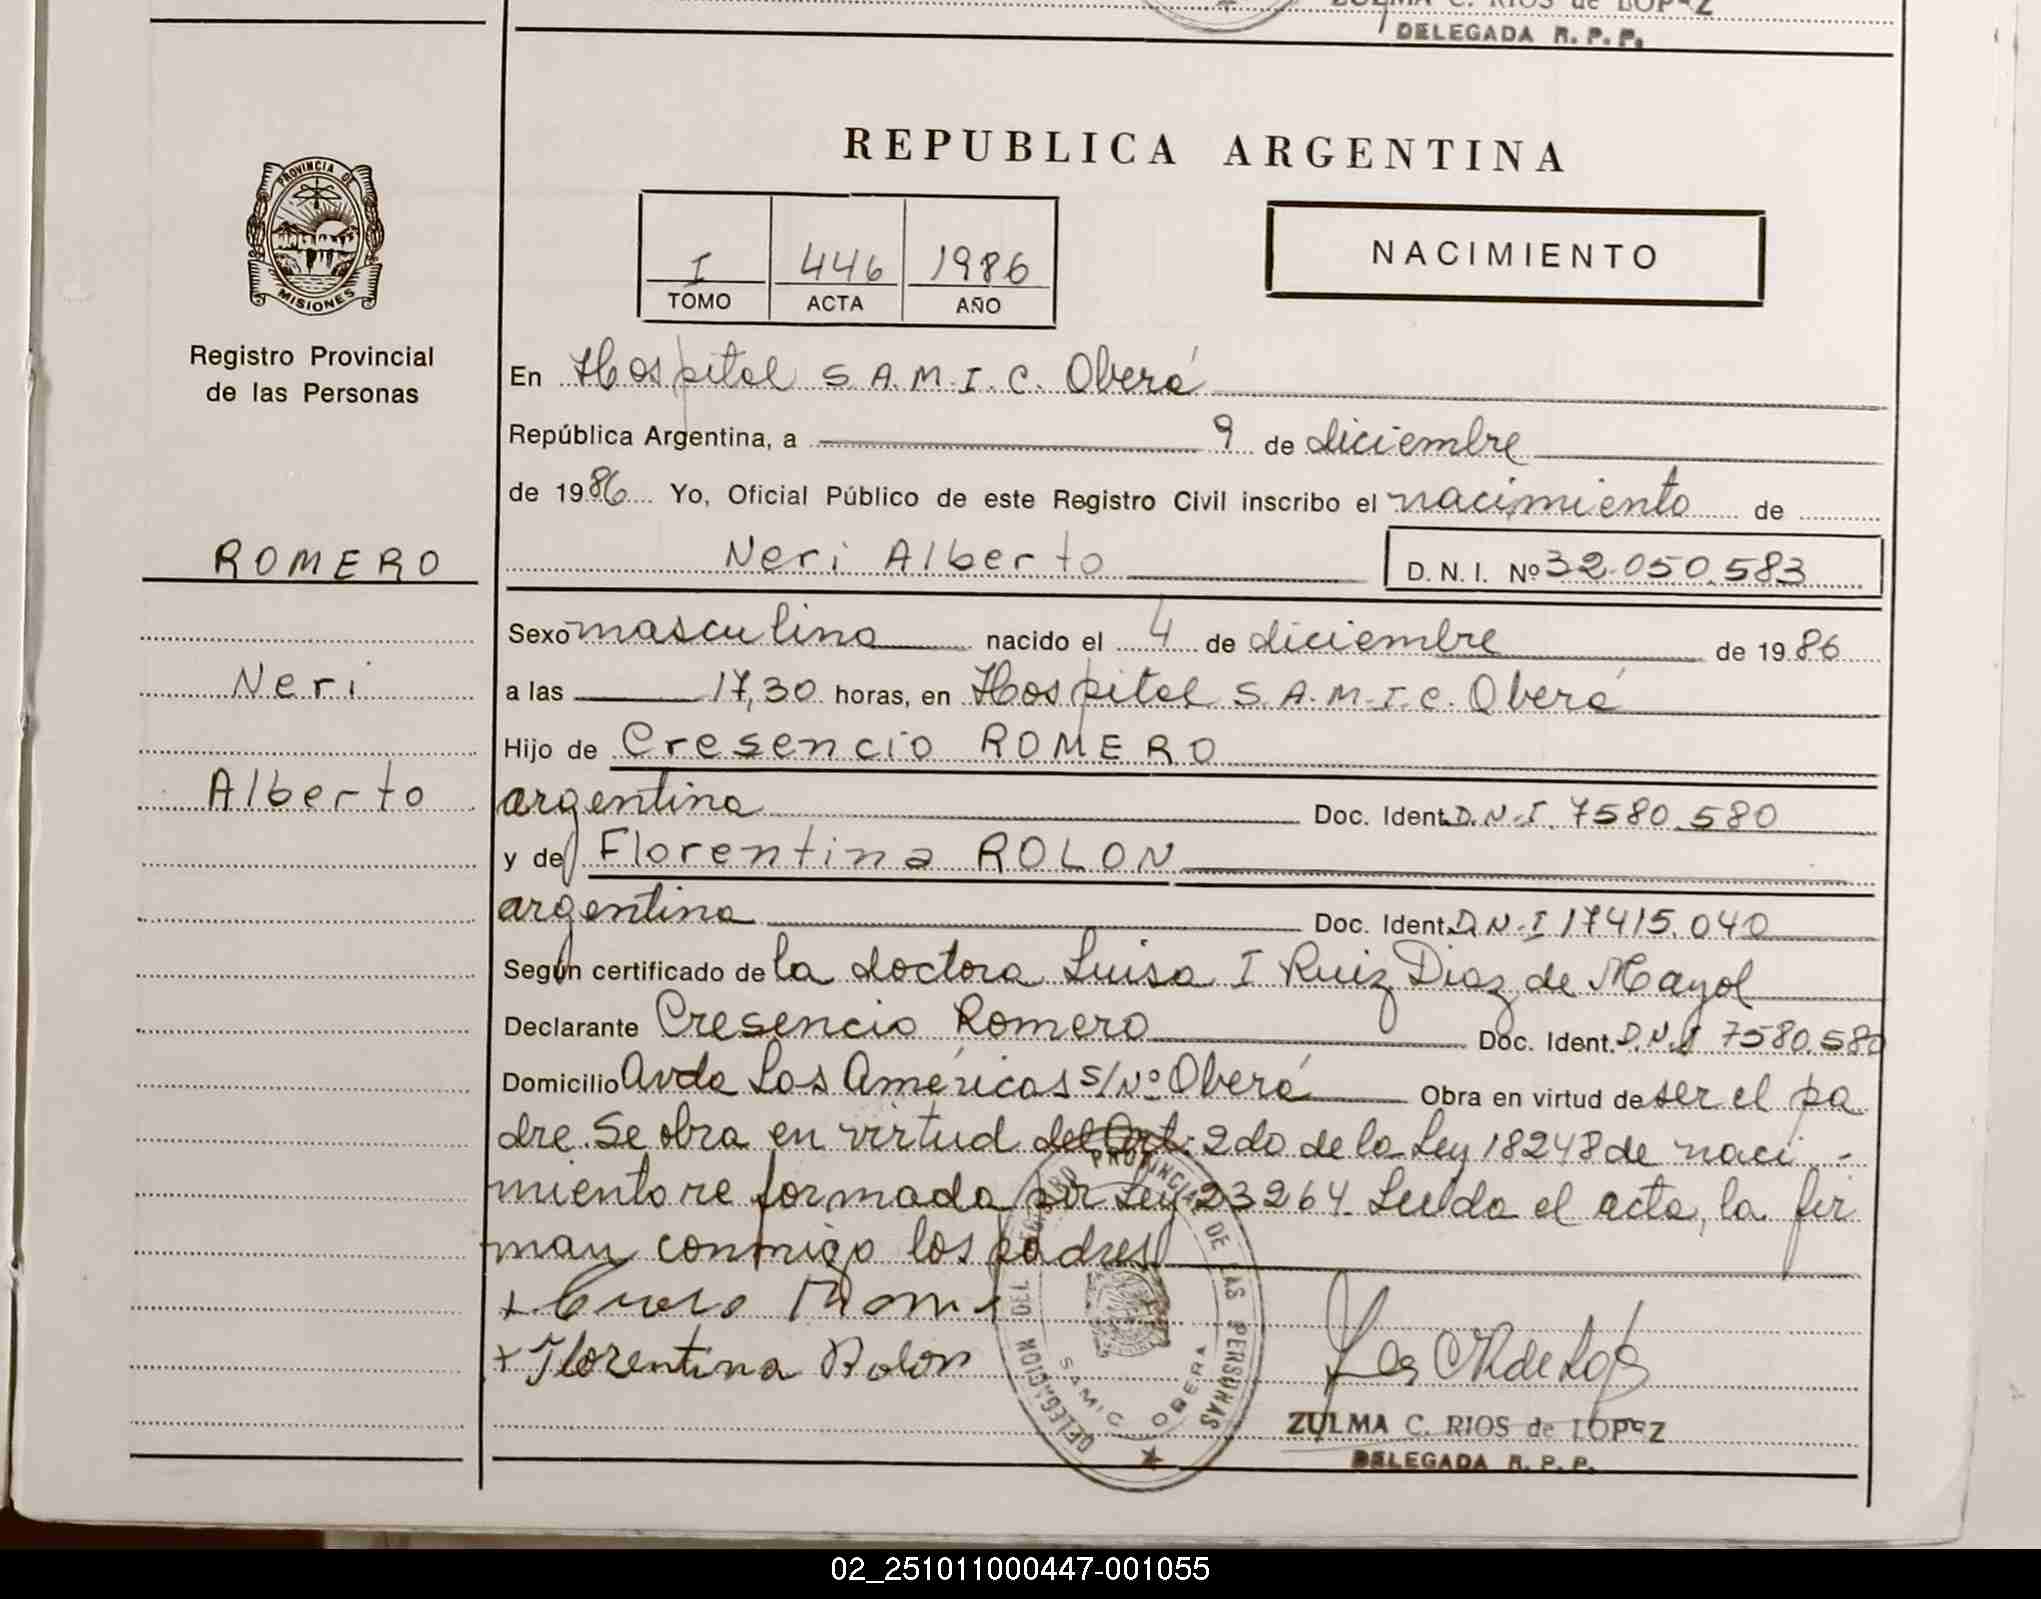 ZULMA C. RIOS de LOPEZ
DELEGADA R. P. P.
REPUBLICA ARGENTINA
PROVINCIA DE
MISIONES
Registro Provincial
de las Personas
I 446 1986
TOMO ACTA AÑO
NACIMIENTO
En Hospital S.A.M.I.C. Oberá
República Argentina, a 9 de diciembre
de 1986 Yo, Oficial Público de este Registro Civil inscribo el nacimiento de
ROMERO
Neri Alberto D. N. I. Nº 32.050.583
Sexo masculino nacido el 4 de diciembre de 1986
Neri
a las 17,30 horas, en Hospital S.A.M.I.C. Oberá
Hijo de Cresencio ROMERO
Alberto
argentina Doc. Ident. D.N.I. 7580.580
y de Florentina ROLON
argentina Doc. Ident. D.N.I 17415.040
Según certificado de la doctora Luisa I Ruiz Diaz de Mayol
Declarante Cresencio Romero Doc. Ident. D.N.I 7580.580
Domicilio Avda Los Américas S/Nº Oberá Obra en virtud de ser el pa
dre. Se obra en virtud del Art: 2do de la Ley 18248 de naci -
miento re formada por Ley 23264. Leída el acta, la fir
man conmigo los padres
+ Florentina Rolon
DELEGACION DEL REGISTRO PROVINCIAL DE LAS PERSONAS
SAMIC OBERA
ZULMA C. RIOS de LOPEZ
DELEGADA R. P. P.
02_251011000447-001055